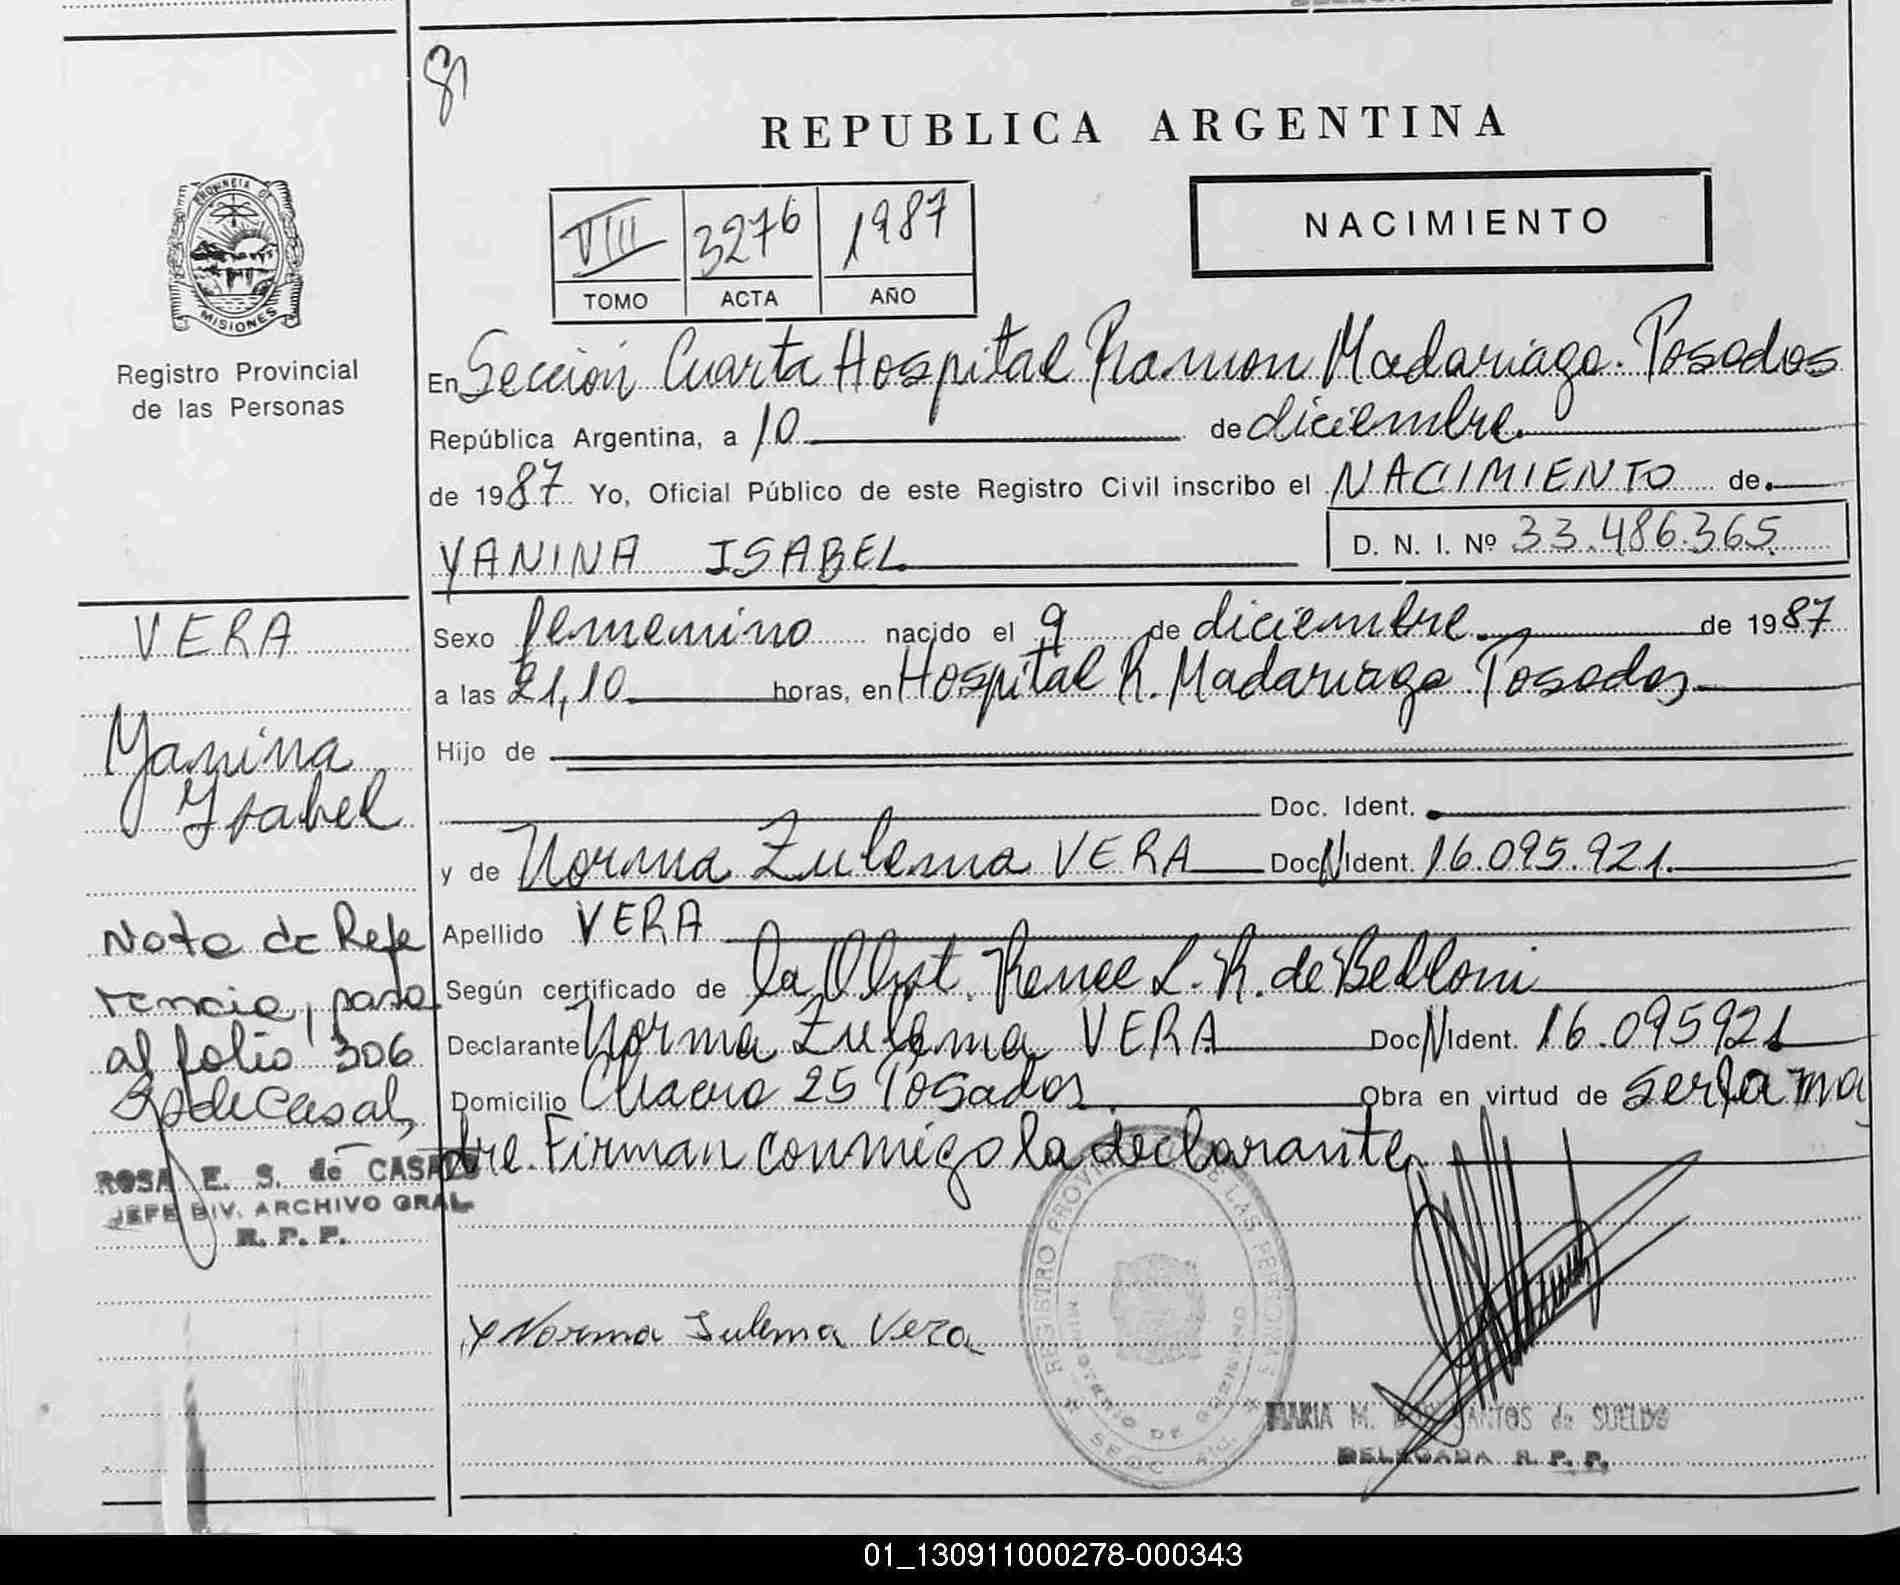 REPUBLICA ARGENTINA
VIII 3276 1987
TOMO ACTA AÑO
NACIMIENTO
PROVINCIA DE
MISIONES
Registro Provincial
de las Personas
En Sección Cuarta Hospital Ramon Madariaga. Posadas
República Argentina, a 10 de diciembre.
de 1987 Yo, Oficial Público de este Registro Civil inscribo el NACIMIENTO de
YANINA ISABEL
D. N. I. Nº 33.486.365
Sexo femenino nacido el 9 de diciembre. de 1987
a las 21,10 horas, en Hospital R. Madariaga Posadas
Hijo de
Doc. Ident.
y de Norma Zulema VERA Doc N Ident. 16.095.921.
Apellido VERA
Según certificado de la Obst. Renee L. R. de Belloni
Declarante Norma Zulema VERA Doc N Ident. 16.095921
Domicilio Chacra 25 Posadas. Obra en virtud de ser la ma
dre. Firman conmigo la declarante
VERA
Yanina
Ysabel
Nota de Refe
rencia, pasa
al folio 306
S de Casal,
ROSA E. S. de CASAL
JEFE DIV. ARCHIVO GRAL.
R. P. P.
x Norma Sulema Vera
REGISTRO PROVINCIAL DE LAS PERSONAS
MINISTERIO DE GOBIERNO
MARIA M. SANTOS de SUELDO
DELEGADA R. P. P.
01_130911000278-000343